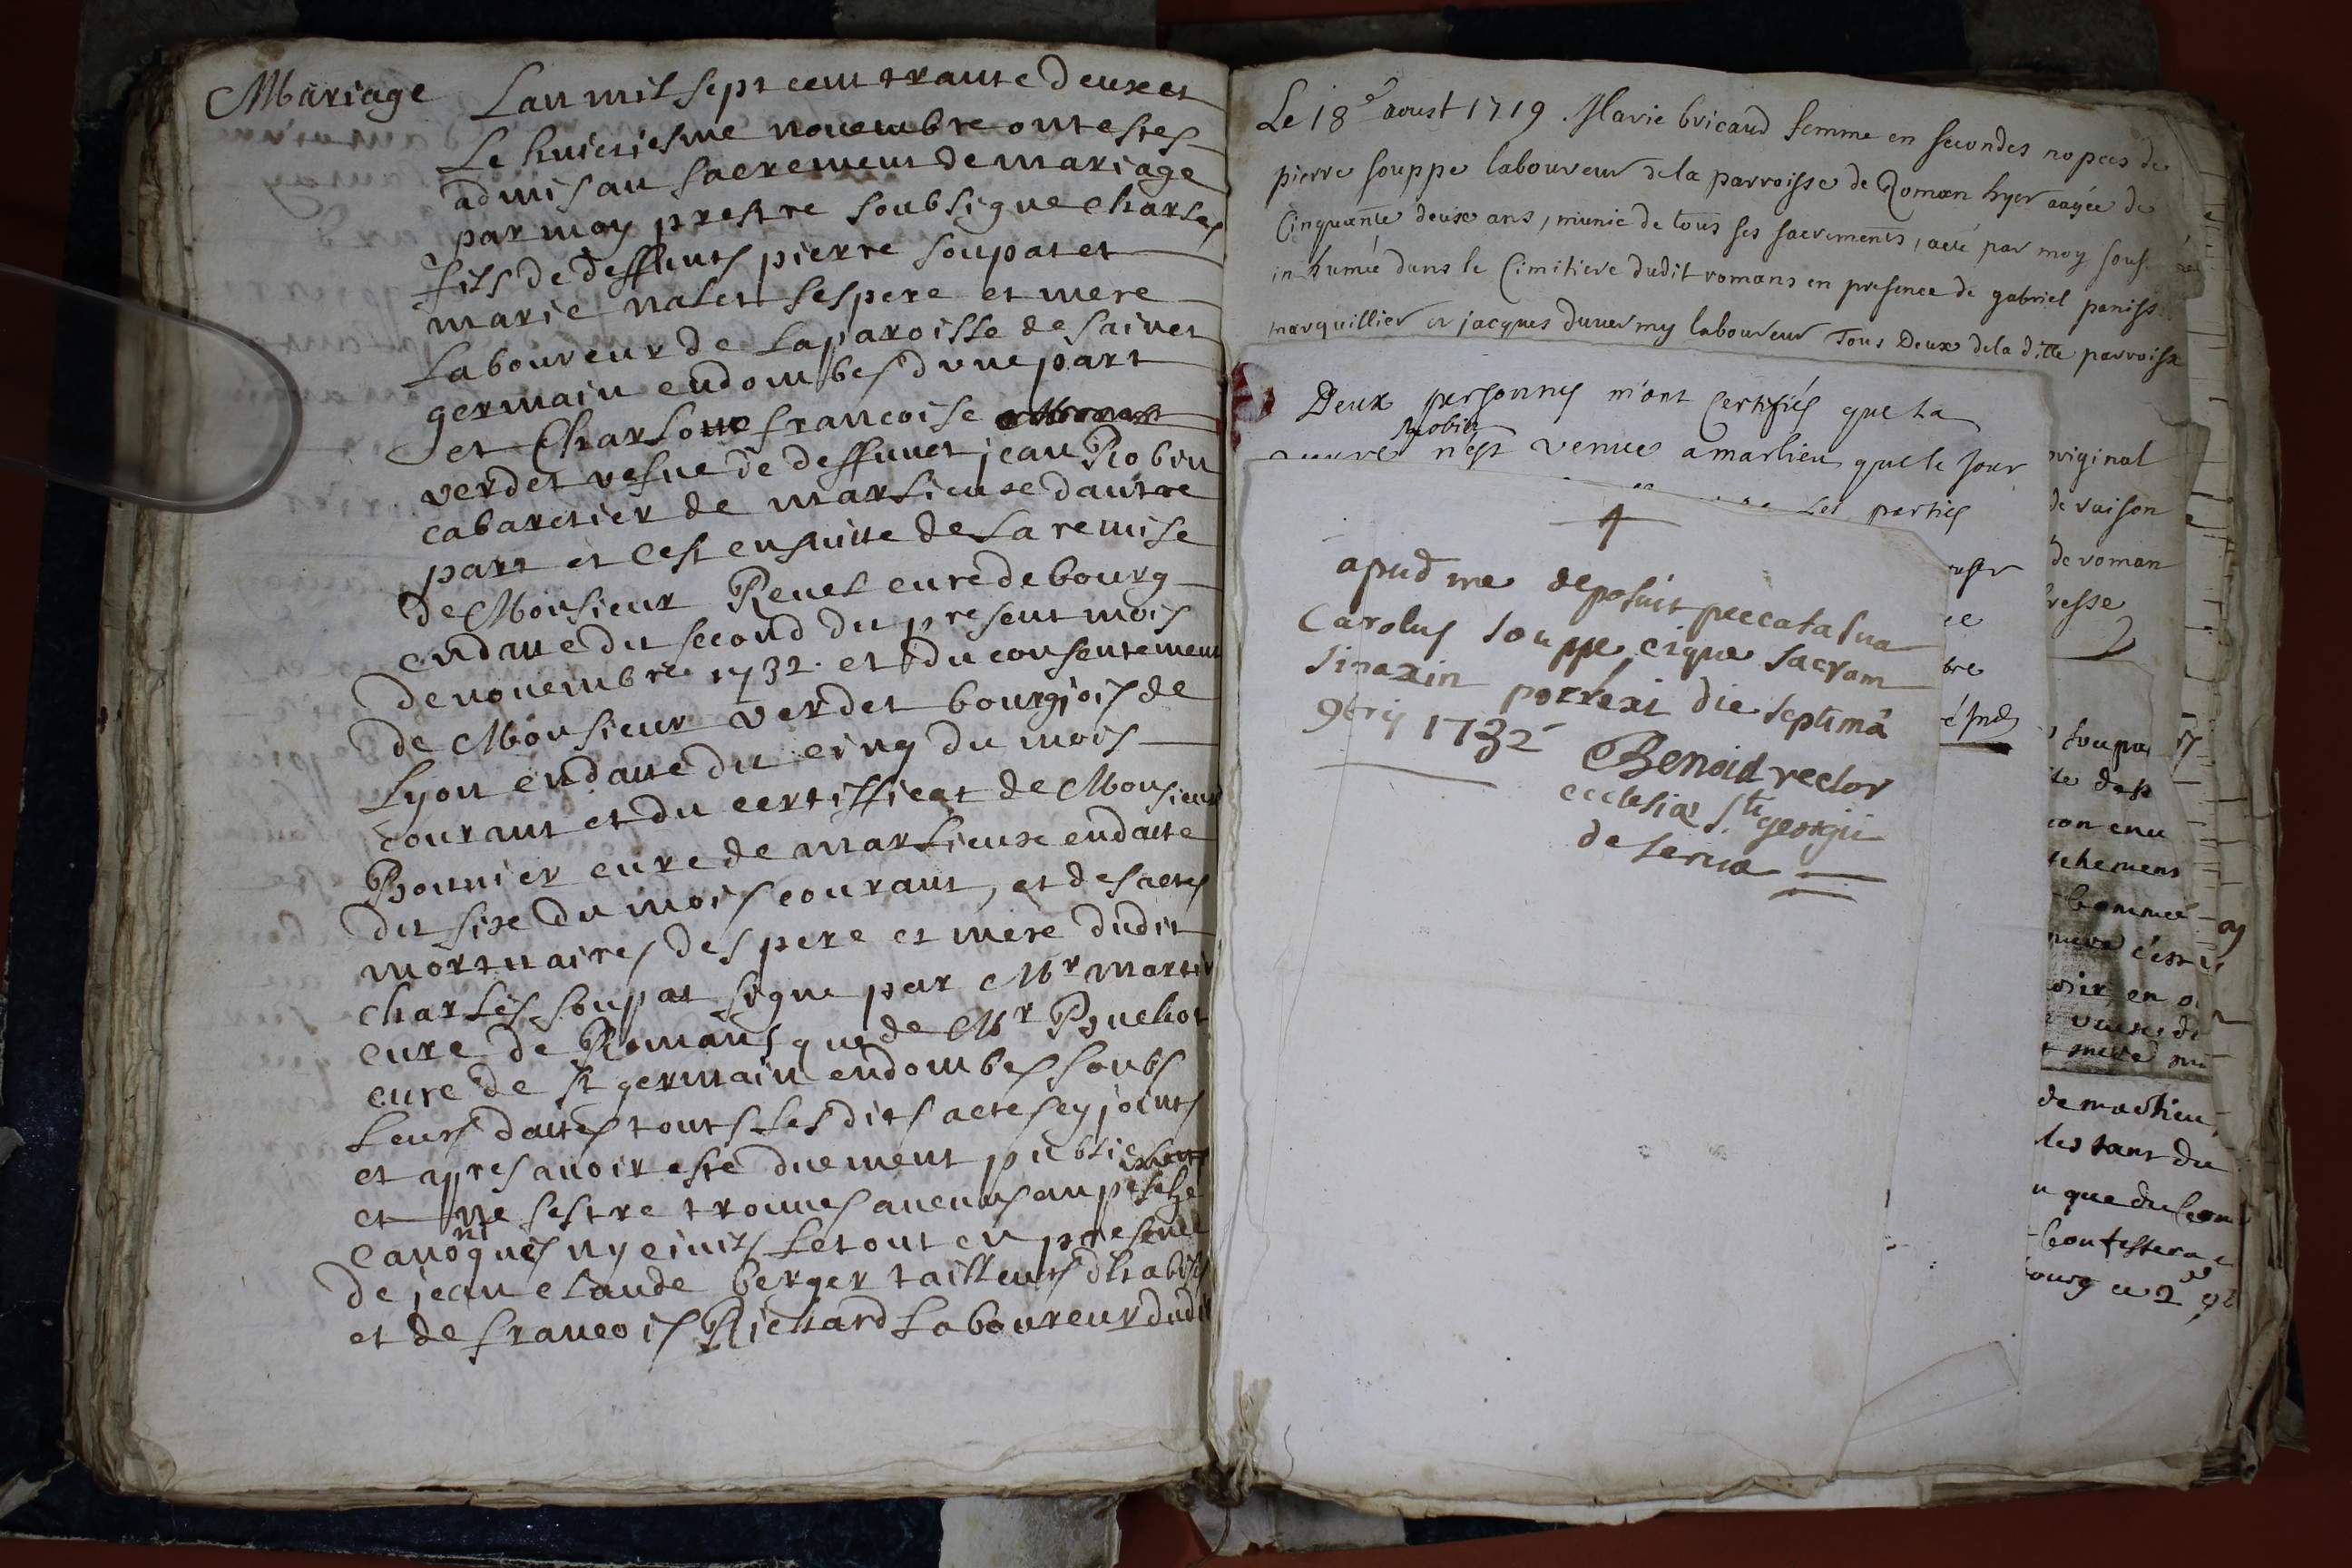 Mariage
Lan mil sept cent trante deux et
Le huictiesme novembre ont estes
admis au sacrement de mariage
par moy prestre soubsigne Charles
fils de deffunts pierre soupat et
marie nalet ses pere et mere
Laboureur de La paroisse de sainct
germain en dombes dune part
et Charlotte francoise
verdet vefue de deffunct jean Robin
cabaretier de marlieuse dautre
part et cest ensuitte de La remise
de Monsieur Revel cure de bourg
en datte du second du present mois
de novembre 1732 et du consentement
de Monsieur verdet bourgjois de
Lyon en datte du cinq du mois
courant et du certifficat de Monsieur
cure de marlieux en datte
du six du mois courant, et des actes
mortuaires des pere et mere dudit
charles soupat signe par Mr martin
cure de Romans que de Mr Pochot
cure de st germain en dombes soubs
Leurs dattes touts Les dits actes cy joints
et apres avoir este duement publie
et ne sestre trouves aucuns anpesche
canoniques ny civils Le tout en presence
de jean claude berger tailleurs dhabits
et de francois Richard Laboureur dudit
Le 18e aoust 1719. Marie bricaud femme en secondes nopces de
pierre souppe laboureur de la parroisse de Roman hyer aagée de
Cinquante deux ans, munie de tous ses sacrements, a eté par moy sous
inhumée dans le Cimitiere dudit romans en presence de gabriel peniss
marguillier et jacques duvermy laboureur Tous Deux de la ditte parroisse
Deux personnes m'ont certifiés que la
robin
n'est venue a marlieu que le jour
les parties
original
de raison
de roman
bresse
+
apud me deposuit peccata sua
Carolus souppe, eique sacram
sinaxin porrexi die septimâ
9bris 1732
Benoid rector
ecclesiae Sti georgii
de
soupa
con enu
chemens
en o
mere
de marlieu
les tant du
que du
bourg ce 2 9b